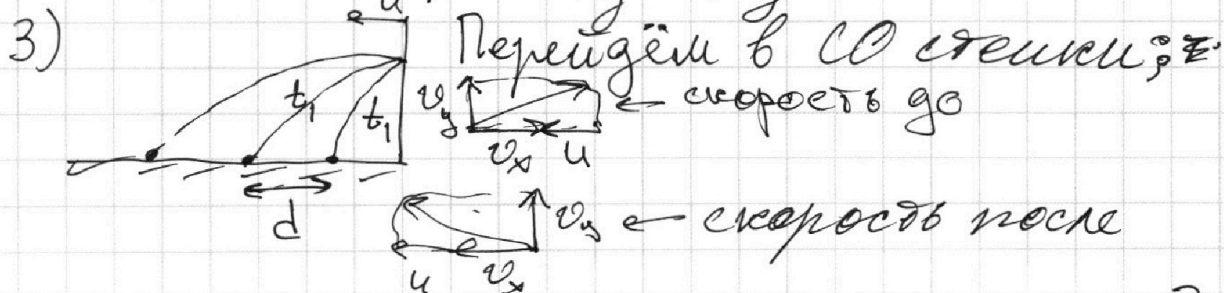 u
3) Перейдём в СО стенки;
t₁ t₁ v_y v_x u ← скорость до
d u v_x v_y ← скорость после